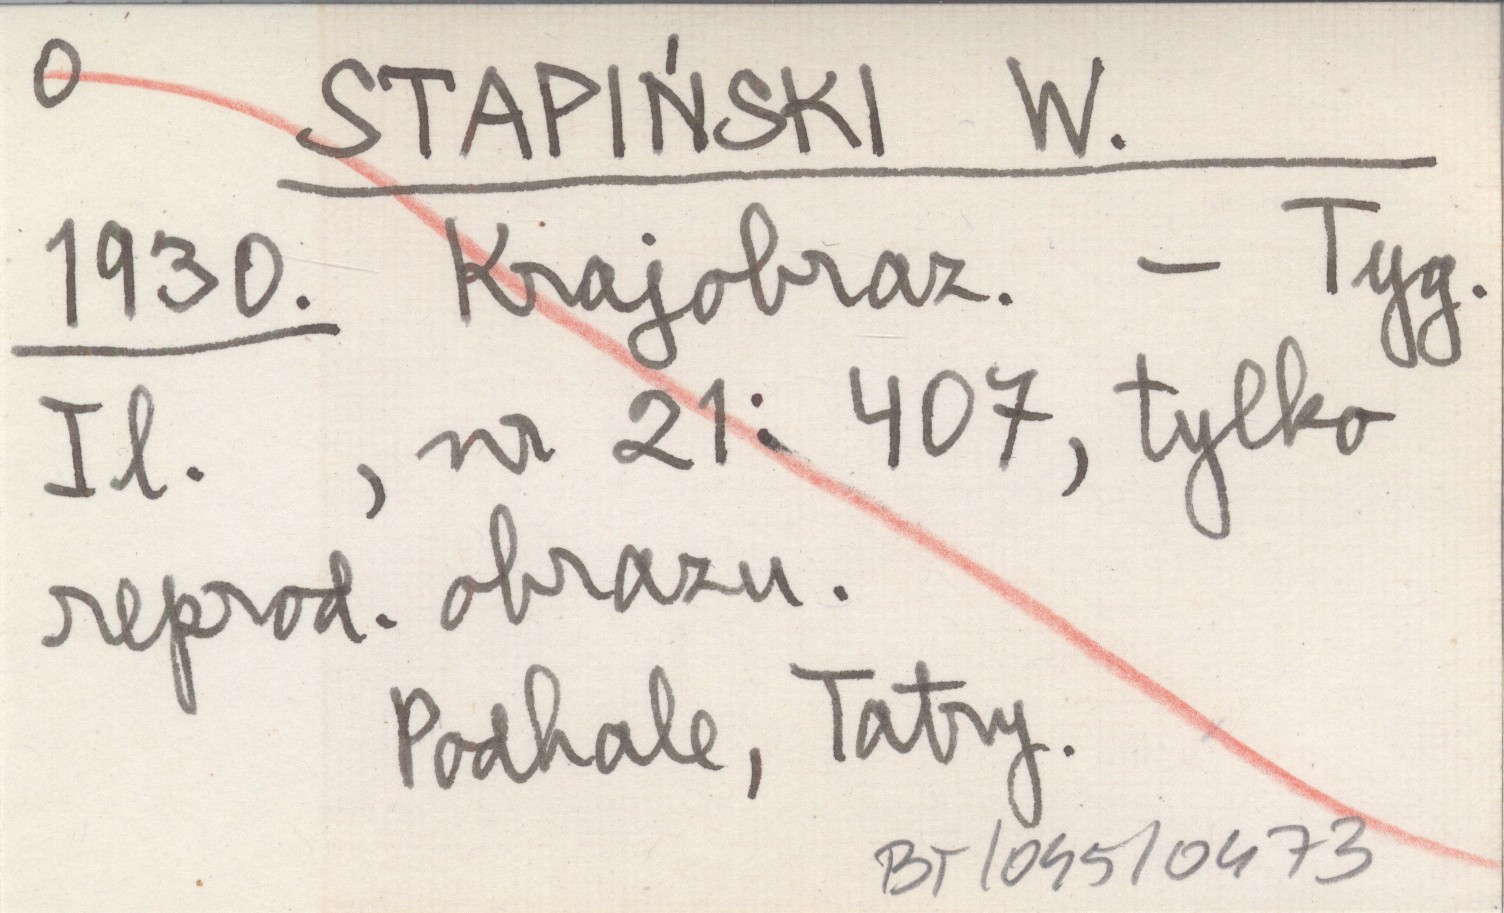 0 STAPIŃSKI W.
1930. Krajobraz. – Tyg.
Il. , nr 21: 407, tylko
reprod. obrazu.
Podhale, Tatry.
BT/045/0473